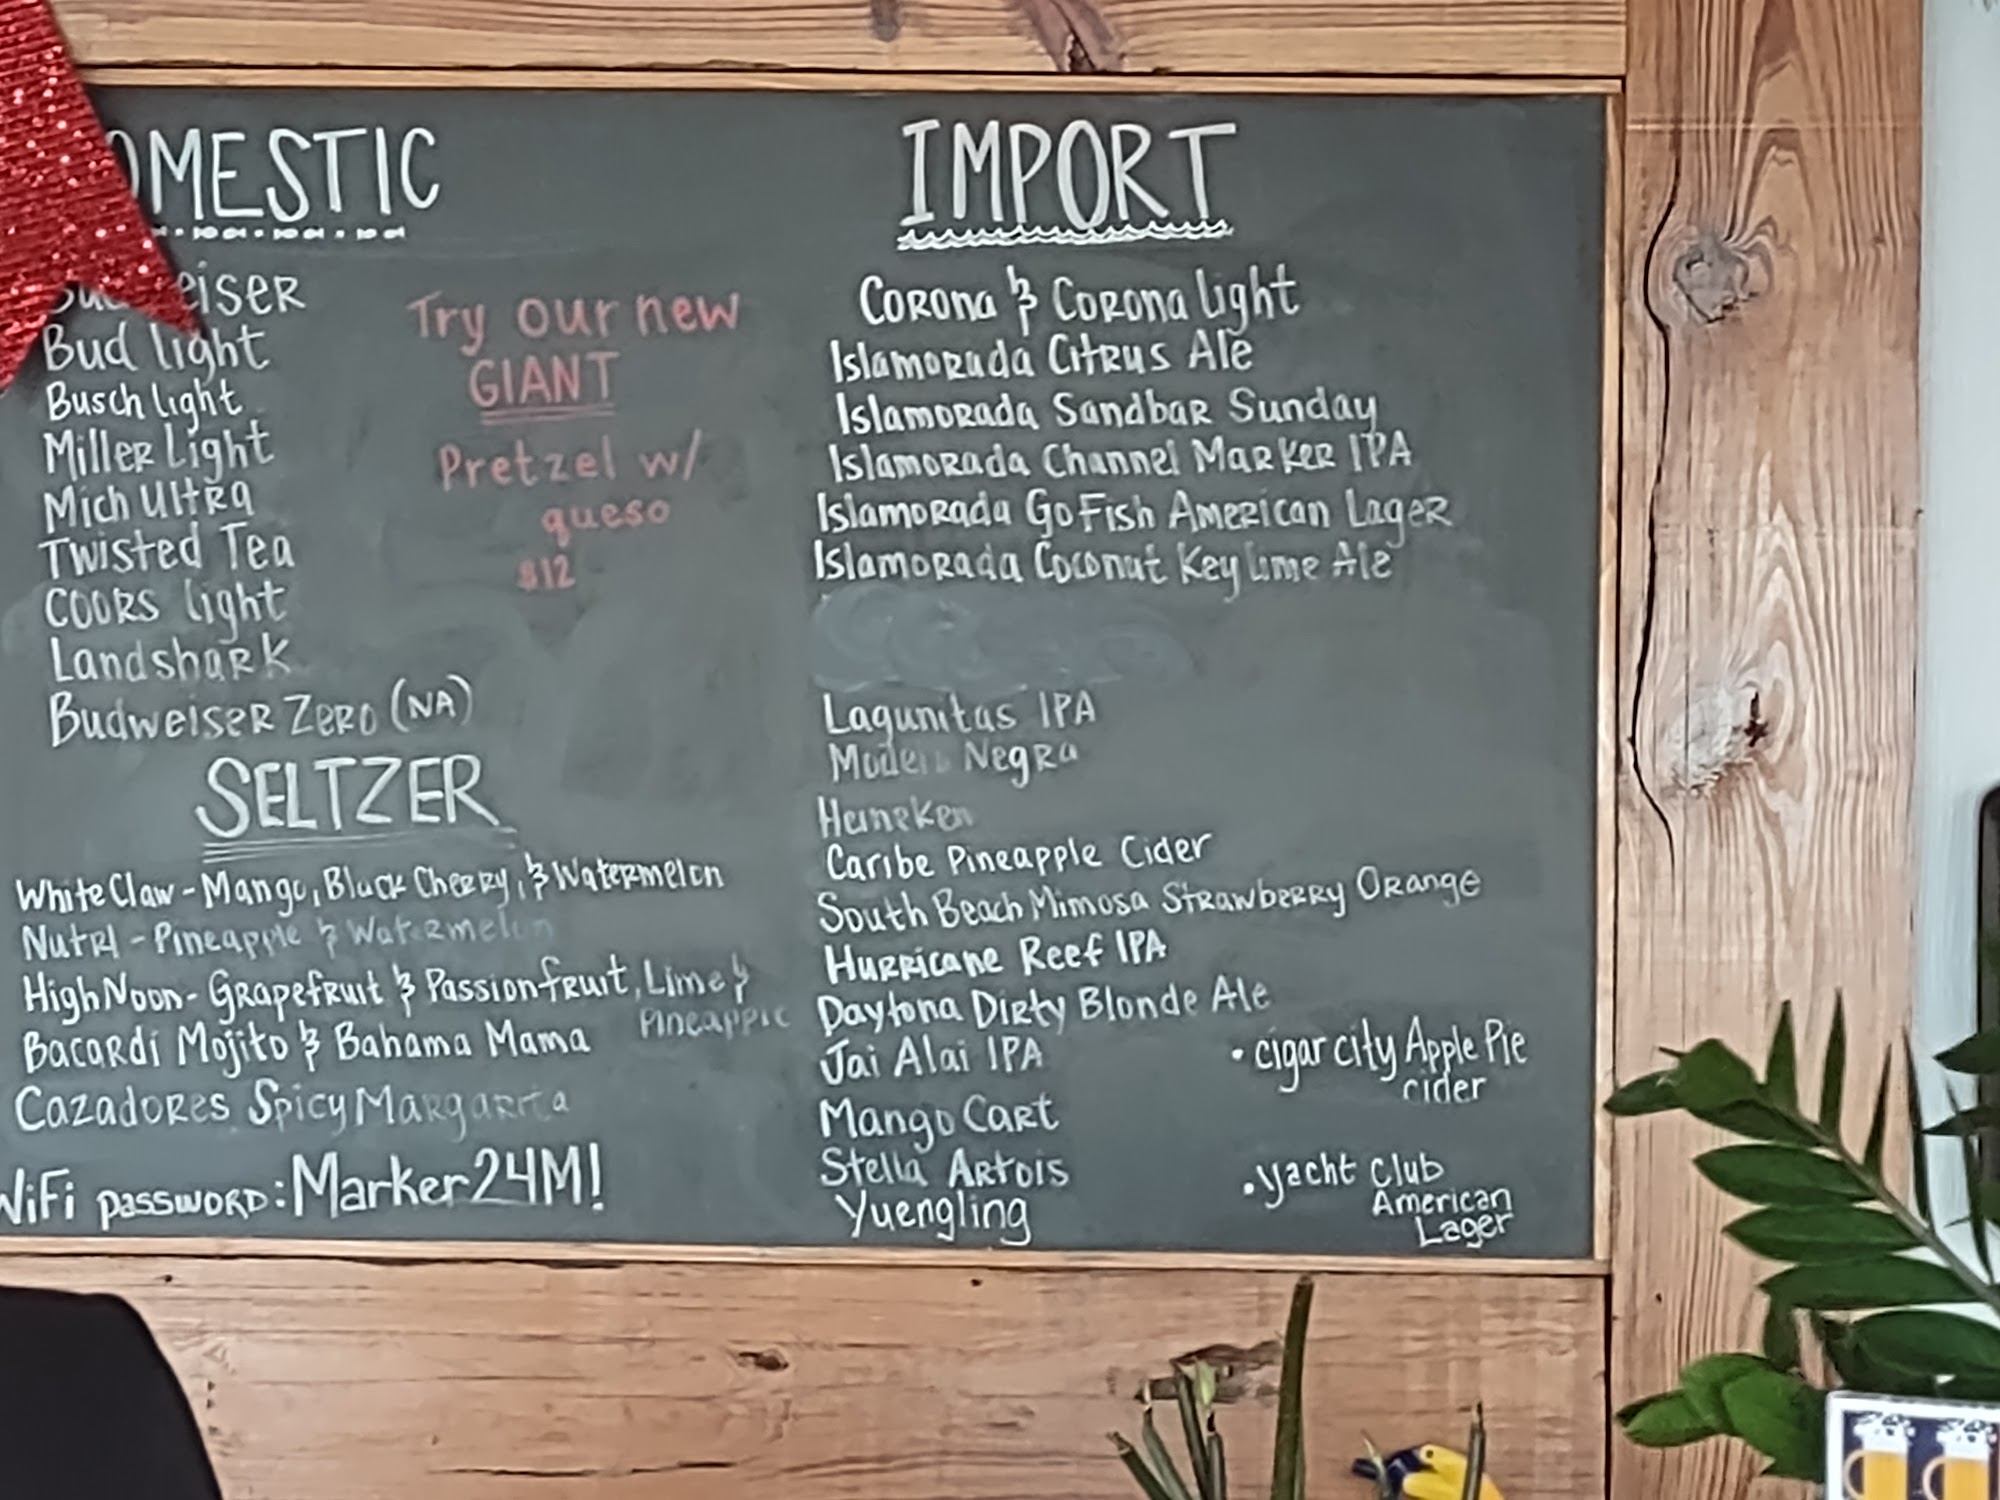 DOMESTIC
Budweiser
Bud light
Busch light
Miller Light
Mich Ultra
Twisted Tea
Coors light
Landshark
Budweiser Zero (NA)
Try our new
GIANT
Pretzel w/
queso
$12
SELTZER
White Claw - Mango, Black Cherry, & Watermelon
Nutrl - Pineapple & Watermelon
High Noon - Grapefruit & Passionfruit, Lime &
Pineapple
Bacardi Mojito & Bahama Mama
Cazadores Spicy Margarita
WiFi password: Marker24M!
IMPORT
Corona & Corona light
Islamorada Citrus Ale
Islamorada Sandbar Sunday
Islamorada Channel Marker IPA
Islamorada Go Fish American Lager
Islamorada Coconut Key lime Ale
Lagunitas IPA
Modelo Negra
Heineken
Caribe Pineapple Cider
South Beach Mimosa Strawberry Orange
Hurricane Reef IPA
Daytona Dirty Blonde Ale
Jai Alai IPA
Mango Cart
Stella Artois
Yuengling
• cigar city Apple Pie
cider
• yacht club
American
Lager